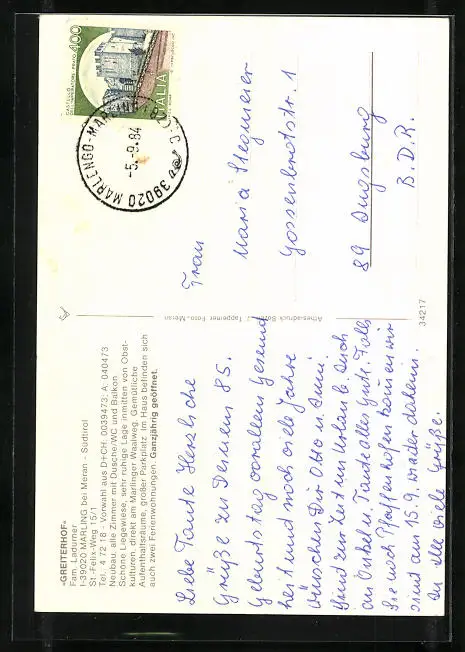 «GREITERHOF»
Fam. Ladurner
I-39020 MARLING bei Meran - Südtirol
St.-Felix-Weg 15/1
Tel. 4 72 18 - Vorwahl aus D+CH: 0039473; A: 040473
Neubau, alle Zimmer mit Dusche/WC und Balkon
Schöne Liegewiese, sehr ruhige Lage inmitten von Obst-
kulturen, direkt am Marlinger Waalweg. Gemütliche
Aufenthaltsräume, großer Parkplatz. Im Haus befinden sich
auch zwei Ferienwohnungen. Ganzjährig geöffnet.
Liebe Tante Herzliche
Grüße zu Deinem 85.
Geburtstag vorallem Gesund
heit und noch viele Jahre
wünschen Dir Otto u. Anni
Sind zur Zeit im Urlaub. Auch
Tante alles Gute. Falls
Sie noch Pfaffenhofen können wir
sind am 15.9. wieder daheim.
An Alle viele Grüße.
34217
Foto-Meran
CASTELLO
DELL'IMPERATORE - PRATO
400
ITALIA
39020 MARLENGO-MARLING
-5.-9.84
Frau
Maria Stegmeier
Gossenbrotstr. 1
89 Augsburg
B.D.R.